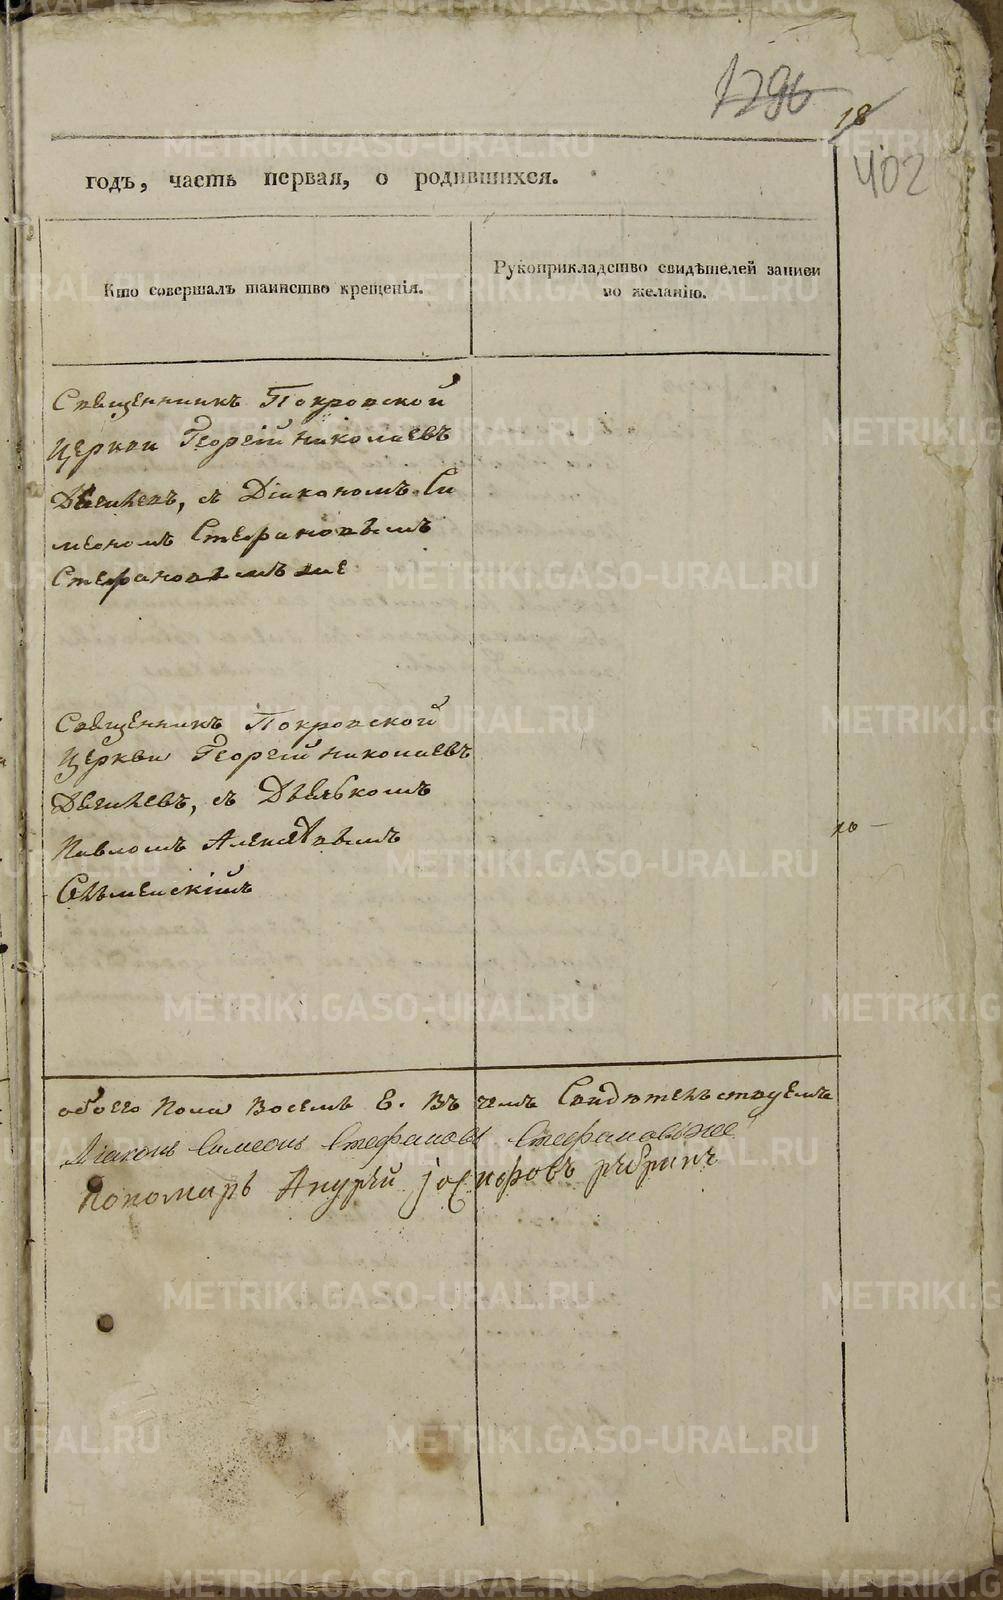 1796
18
402
годъ, часть первая, о родившихся.
Кто совершалъ таинство крещенія.
Рукоприкладство свидѣтелей записи
по желанію.
Священникъ Покровской
Церкви Георгій Николаевъ
съ Діакономъ Си
меономъ Стефановымъ
Стефановымъ же
Священникъ Покровской
Церкви Георгій Николаевъ
съ Дьячкомъ
Павломъ
10
обоего пола восемь 8. Въ чемъ Свидѣтельствуемъ
Діаконъ Симеонъ Стефановъ Стефановъ же
Пономарь Андрей Іосифовъ
METRIKI.GASO-URAL.RU